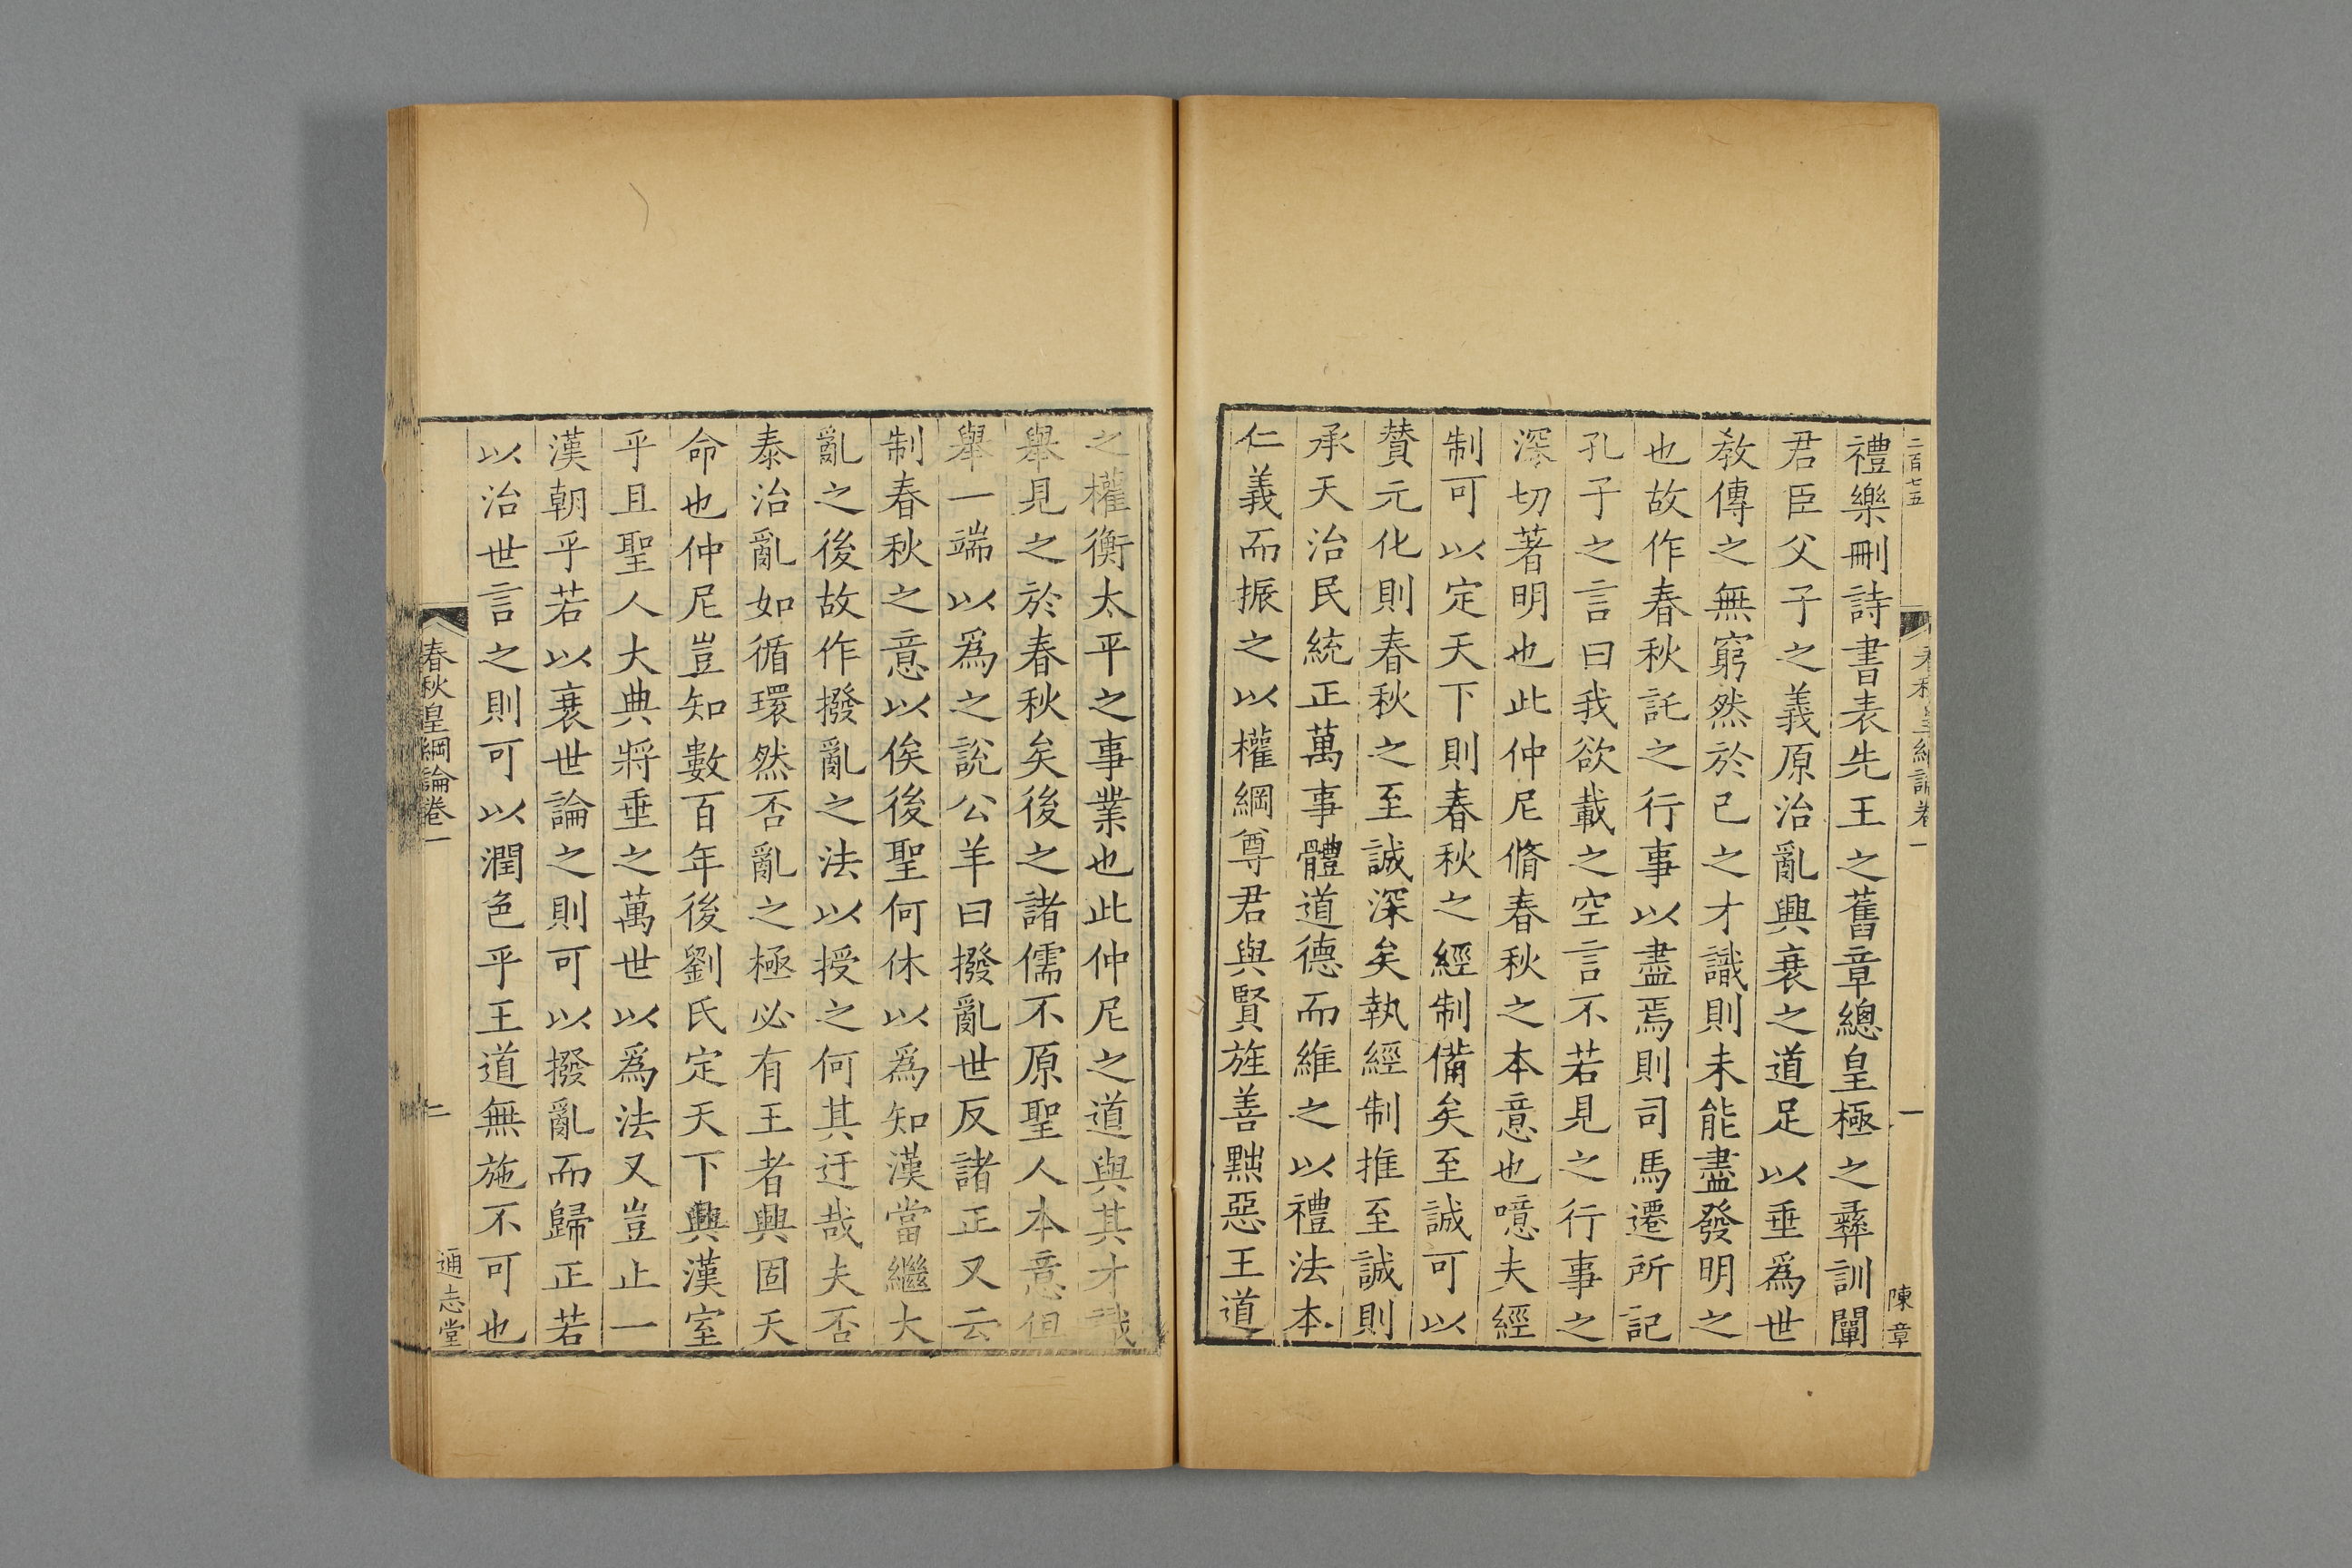 二百七五
春秋皇綱論卷一
一
陳章
禮樂刪詩書表先王之舊章總皇極之彞訓闡
君臣父子之義原治亂興衰之道足以垂爲世
教傳之無窮然於己之才識則未能盡發明之
也故作春秋託之行事以盡焉則司馬遷所記
孔子之言曰我欲載之空言不若見之行事之
深切著明也此仲尼脩春秋之本意也噫夫經
制可以定天下則春秋之經制備矣至誠可以
賛元化則春秋之至誠深矣執經制推至誠則
承天治民統正萬事體道德而維之以禮法本
仁義而振之以權綱尊君與賢旌善黜惡王道
之權衡太平之事業也此仲尼之道與其才識
舉見之於春秋矣後之諸儒不原聖人本意但
舉一端以爲之說公羊曰撥亂世反諸正又云
制春秋之意以俟後聖何休以爲知漢當繼大
亂之後故作撥亂之法以授之何其迂哉夫否
泰治亂如循環然否亂之極必有王者興固天
命也仲尼豈知數百年後劉氏定天下興漢室
乎且聖人大典將垂之萬世以爲法又豈止一
漢朝乎若以衰世論之則可以撥亂而歸正若
以治世言之則可以潤色乎王道無施不可也
春秋皇綱論卷一
二
通志堂